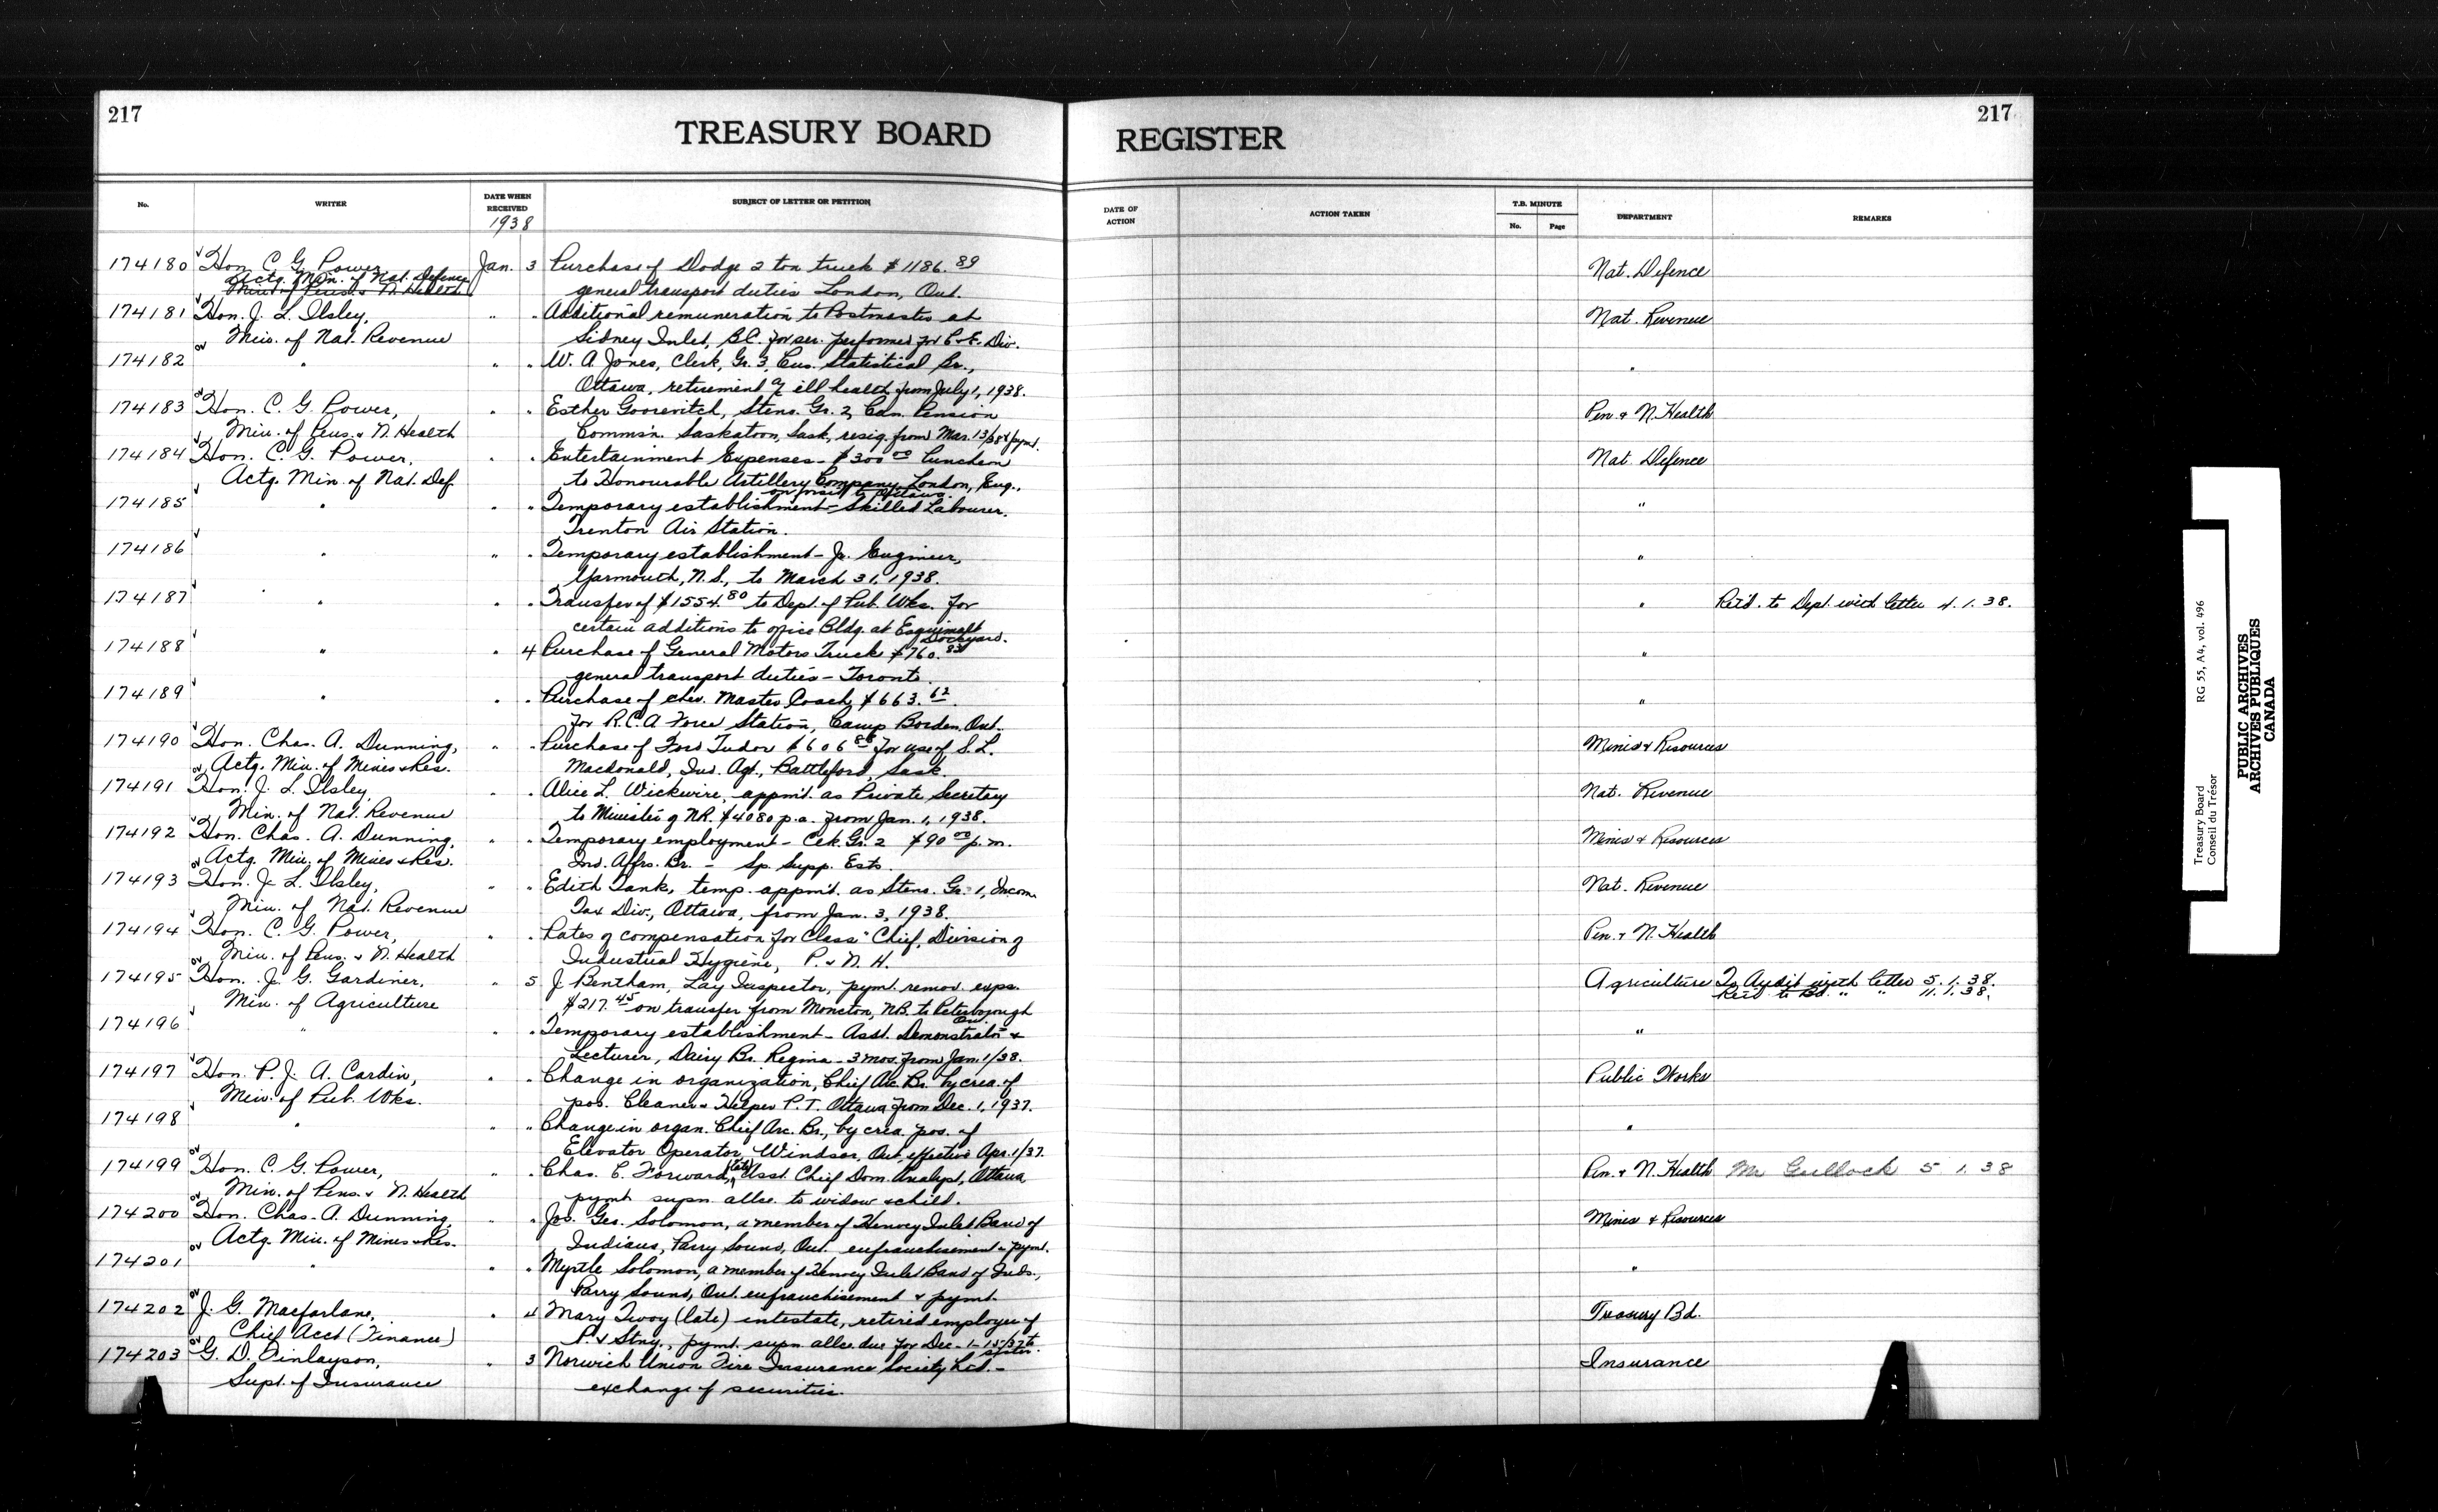 217
TREASURY BOARD
No.
WRITER
DATE WHEN RECEIVED
1938
SUBJECT OF LETTER OR PETITION
174180 Hon. C. G. Power, Jan. 3 Purchase of Dodge 2 ton truck $1186.89
Actg. Min. of Nat. Defence
Min. of Pens. & N. Health
general transport duties London, Ont.
174181 Hon. J. L. Ilsley, " " Additional remuneration to Postmaster at
Min. of Nat. Revenue Sidney Inlet, B.C. for ser. performed for C.&E. Div.
174182 " " " W. A. Jones, Clerk, Gr. 3, Cus. Statistical Br.,
Ottawa, retirement a/c ill health from July 1, 1938.
174183 Hon. C. G. Power, " " Esther Goorevitch, Steno. Gr. 2, Can. Pension
Min. of Pens. & N. Health Comms'n. Saskatoon, Sask, resig. from Mar. 13/38 & pymt.
174184 Hon. C. G. Power, " " Entertainment Expenses - $300.00 luncheon
Actg. Min. of Nat. Def. to Honourable Artillery Company, London, Eng.,
174185 " " " Temporary establishment - Skilled Labourer,
Trenton Air Station.
174186 " " " Temporary establishment - Jr. Engineer,
Yarmouth, N.S., to March 31, 1938.
174187 " " " Transfer of $1554.80 to Dept. of Pub. Wks. for
certain additions to office Bldg. at Esquimalt
Dockyard.
174188 " " 4 Purchase of General Motors Truck $760.
general transport duties - Toronto.
174189 " " " Purchase of Chev. Master Coach, $663.62
for R.C.A Force Station, Camp Borden, Ont.
174190 Hon. Chas. A. Dunning, " " Purchase of Ford Tudor $606.88 for use of S. L.
Actg. Min. of Mines & Res. Macdonald, Ind. Agt., Battleford, Sask.
174191 Hon. J. L. Ilsley, " " Alice L. Wickwire, appm't. as Private Secretary
Min. of Nat. Revenue to Minister of N.R. $4080 p.a. from Jan. 1, 1938.
174192 Hon. Chas. A. Dunning, " " Temporary employment - Clk. Gr. 2 $90.00 p.m.
Actg. Min. of Mines & Res. Ind. Affrs. Br. - Sp. Supp. Ests.
174193 Hon. J. L. Ilsley, " " Edith Tank, temp. appm't. as Steno. Gr. 1, Incom.
Min. of Nat. Revenue Tax Div., Ottawa, from Jan. 3, 1938.
174194 Hon. C. G. Power, " " Rates of compensation for Class "Chief, Division of
Min. of Pens. & N. Health Industrial Hygiene, P. & N. H.
174195 Hon. J. G. Gardiner, " 5 J. Bentham, Lay Inspector, pymt. remov. exps.
Min. of Agriculture $217.45 on transfer from Moncton, N.B. to Peterborough
Ont.
174196 " " " Temporary establishment - Asst. Demonstrator &
Lecturer, Dairy Br. Regina - 3 mos. from Jan. 1/38.
174197 Hon. P. J. A. Cardin, " " Change in organization, Chief Arc. Br. by crea. of
Min. of Pub. Wks. pos. Cleaner & Helper P.T. Ottawa from Dec. 1, 1937.
174198 " " " Change in organ. Chief Arc. Br., by crea. pos. of
Elevator Operator, Windsor, Ont, effective Apr. 1/37.
174199 Hon. C. G. Power, " " Chas. E. Forward, (late) Asst. Chief Dom. Analyst, Ottawa
Min. of Pens. & N. Health pymt supn. allce. to widow & child.
174200 Hon. Chas. A. Dunning, " " Jos. Geo. Solomon, a member of Henvey Inlet Band of
Actg. Min. of Mines & Res. Indians, Parry Sound, Ont. enfranchisement & pymt.
174201 " " " Myrtle Solomon, a member of Henvey Inlet Band of Inds.,
Parry Sound, Ont. enfranchisement & pymt.
174202 J. G. Macfarlane, " 4 Mary Tivoy (late) intestate, retired employee of
Chief Acct (Finance) P. & Stny., pymt. supn allce. due for Dec. 1-15/37 to
sister.
174203 G. D. Finlayson, " 3 Norwich Union Fire Insurance Society Ltd. -
Supt. of Insurance exchange of securities.
217
REGISTER
DATE OF ACTION
ACTION TAKEN
T.B. MINUTE
No. Page
DEPARTMENT
REMARKS
Nat. Defence
Nat. Revenue
"
Pen. & N. Health
Nat. Defence
"
"
" Ret'd. to Dept. with letter 4. 1. 38.
"
"
Mines & Resources
Nat. Revenue
Mines & Resources
Nat. Revenue
Pen. & N. Health
Agriculture To Audit with letter 5. 1. 38.
Ret'd. to Bd. " " 11. 1. 38.
"
Public Works
"
Pen. & N. Health Mr Gullock 5 1 38
Mines & Resources
"
Treasury Bd.
Insurance
Treasury Board
Conseil du Trésor
RG 55, A4, vol. 496
PUBLIC ARCHIVES
ARCHIVES PUBLIQUES
CANADA